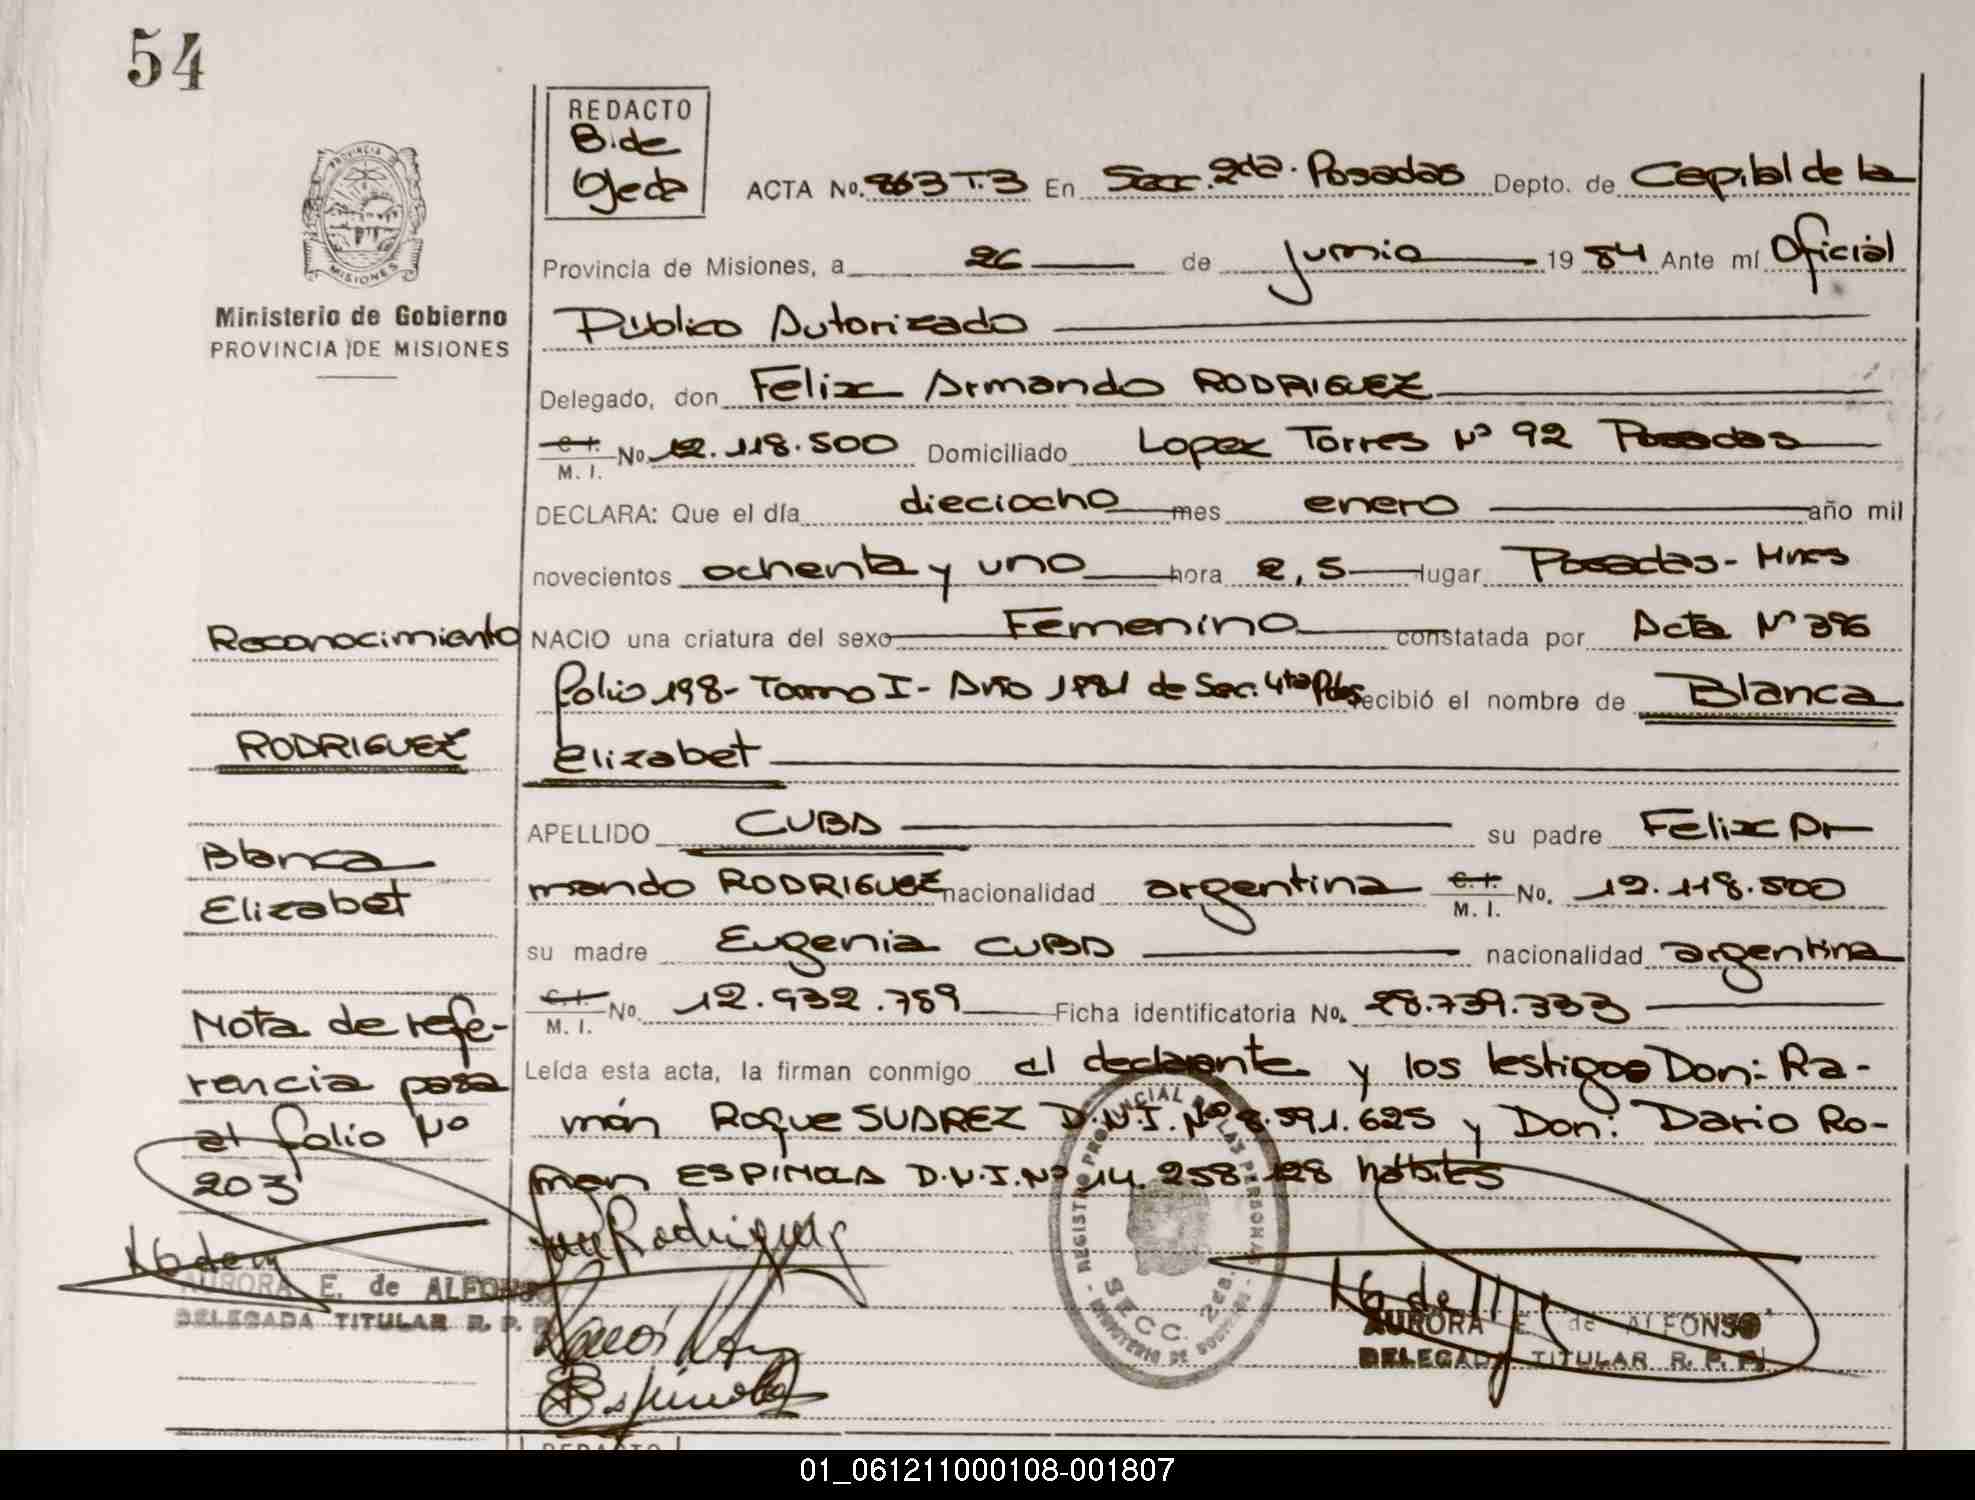 54
REDACTO
B. de
Ojeda
ACTA No. 863 T.3 En Secc. 2da. Posadas Depto. de Capital de la
PROVINCIA DE
MISIONES
Provincia de Misiones, a 26 de junio 19 84 Ante mí Oficial
Ministerio de Gobierno
PROVINCIA DE MISIONES
Público Autorizado
Delegado, don Felix Armando RODRIGUEZ
C. I.
M. I. No. 12.118.500 Domiciliado Lopez Torres Nº 92 Posadas
DECLARA: Que el día dieciocho mes enero año mil
novecientos ochenta y uno hora 2,5 lugar Posadas - Mnes
Reconocimiento
NACIO una criatura del sexo Femenino constatada por Acta Nº 396
folio 198 - Tomo I - Año 1981 de Sec. 4ta Pdas recibió el nombre de Blanca
RODRIGUEZ
Elizabet
APELLIDO CUBA su padre Felix Ar-
Blanca
Elizabet
mando RODRIGUEZ nacionalidad argentina C. I.
M. I. No. 12.118.500
su madre Eugenia CUBA nacionalidad argentina
C. I.
M. I. No. 12.932.789 Ficha identificatoria No. 28.739.333
Nota de refe-
rencia pasa
al folio Nº
203
Leída esta acta, la firman conmigo el declarante y los testigos Don: Ra-
món Roque SUAREZ D.N.I. Nº 8.591.625 y Don: Dario Ro-
man ESPINOLA D.N.I. Nº 14.258.128 hábiles
Rodriguez
AURORA E. de ALFONSO
DELEGADA TITULAR R. P. P.
REGISTRO PROVINCIAL DE LAS PERSONAS
SECC. 2da.
MINISTERIO DE GOBIERNO
AURORA E. de ALFONSO
DELEGADA TITULAR R. P. P.
Espinola
REDACTO
01_061211000108-001807